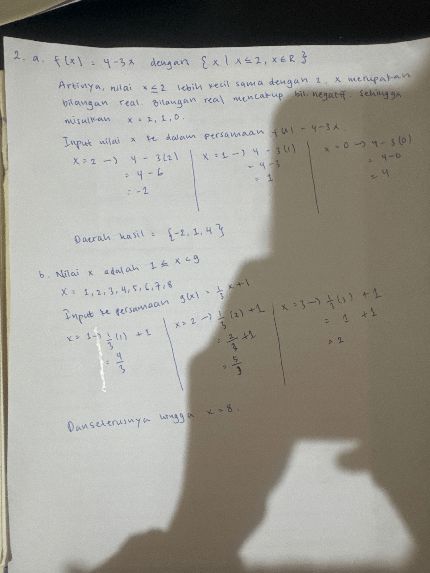 2. a. f(x) = 4-3x dengan {x | x ≤ 2, x ∈ R}
Artinya, nilai x ≤ 2 lebih kecil sama dengan 2. x merupakan
bilangan real. Bilangan real mencakup bil negatif. Sehingga
misalkan x = 2, 1, 0.
Input nilai x ke dalam persamaan f(x) = 4-3x.
x = 2 → 4 - 3(2) | x = 1 → 4 - 3(1) | x = 0 → 4 - 3(0)
= 4 - 6 | = 4 - 3 | = 4 - 0
= -2 | = 1 | = 4
Daerah hasil = {-2, 1, 4}
b. Nilai x adalah 1 ≤ x < 9
x = 1, 2, 3, 4, 5, 6, 7, 8
Input ke persamaan g(x) = 1/3 x + 1
x = 1 → 1/3 (1) + 1 | x = 2 → 1/3 (2) + 1 | x = 3 → 1/3 (3) + 1
= 4/3 | = 2/3 + 1 | = 1 + 1
= 5/3 | = 2
Dan seterusnya hingga x = 8.